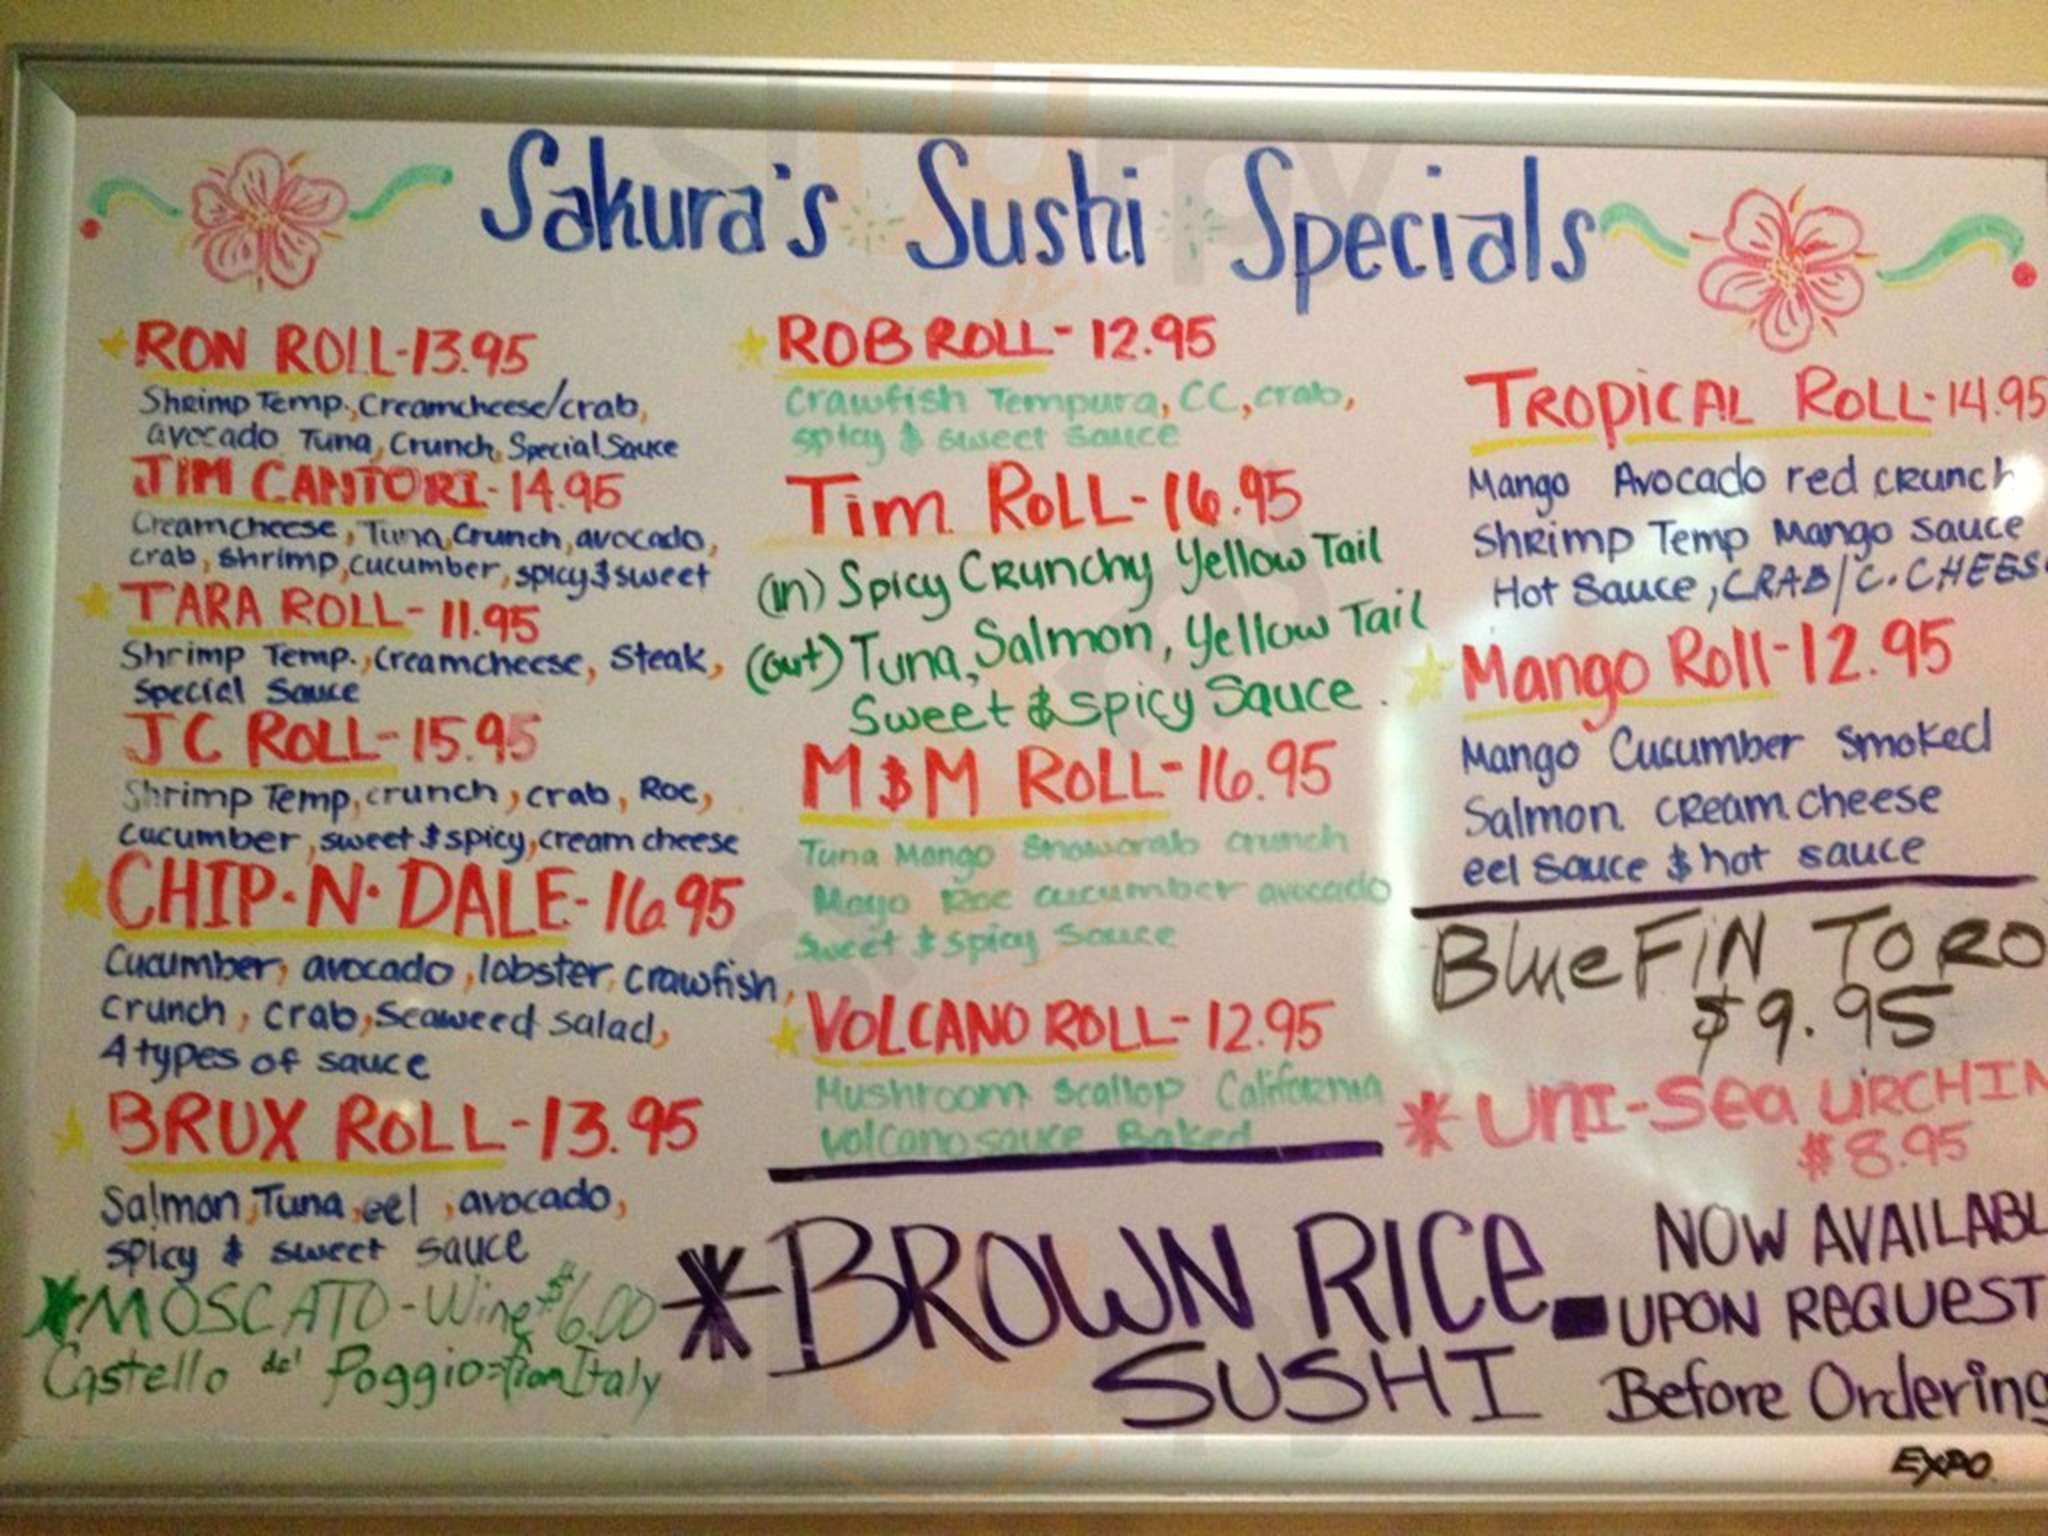 Sakura's Sushi Specials
RON ROLL-13.95
Shrimp Temp., Creamcheese/crab,
avocado Tuna, Crunch, Special Sauce
JIM CANTORI-14.95
Creamcheese, Tuna, Crunch, avocado,
crab, shrimp, cucumber, spicy & sweet
TARA ROLL-11.95
Shrimp Temp., Creamcheese, Steak,
Special Sauce
JC ROLL-15.95
Shrimp Temp, crunch, crab, Roe,
Cucumber, sweet & spicy, cream cheese
CHIP·N·DALE-16.95
Cucumber, avocado, lobster, crawfish,
Crunch, Crab, Seaweed salad,
4 types of sauce
BRUX ROLL-13.95
Salmon, Tuna, eel, avocado,
spicy & sweet sauce
*MOSCATO-Wine $6.00
Castello del Poggio from Italy
ROB ROLL-12.95
Crawfish Tempura, CC, crab,
spicy & sweet sauce
Tim ROLL-16.95
(in) Spicy Crunchy Yellow Tail
(out) Tuna, Salmon, Yellow Tail
Sweet & Spicy Sauce.
M&M ROLL-16.95
Tuna Mango Snowcrab crunch
Mayo Roe cucumber avocado
Sweet & spicy Sauce
VOLCANO ROLL-12.95
Mushroom Scallop California
volcano sauce Baked
TROPICAL ROLL-14.95
Mango Avocado red crunch
Shrimp Temp Mango Sauce
Hot Sauce, CRAB/C.CHEES
Mango Roll-12.95
Mango Cucumber Smoked
Salmon cream cheese
eel Sauce & hot sauce
Blue FIN TORO
$9.95
*UNI-Sea URCHIN
$8.95
*BROWN RICE
SUSHI
-NOW AVAILABL
UPON REQUEST
Before Ordering
EXPO